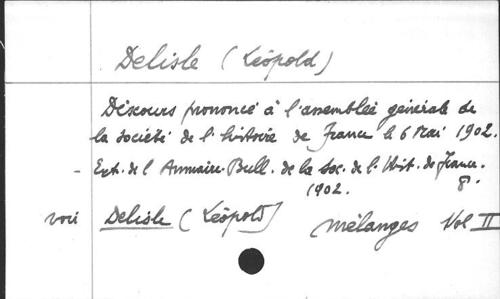 Delisle (Léopold)
Discours prononcé à l'assemblée générale de
la société de l'histoire de France le 6 Mai 1902.
- Ext. de l'Annuaire-Bull. de la Soc. de l'Hist. de France.
1902. 8°.
voir Delisle (Léopold) Mélanges Vol II